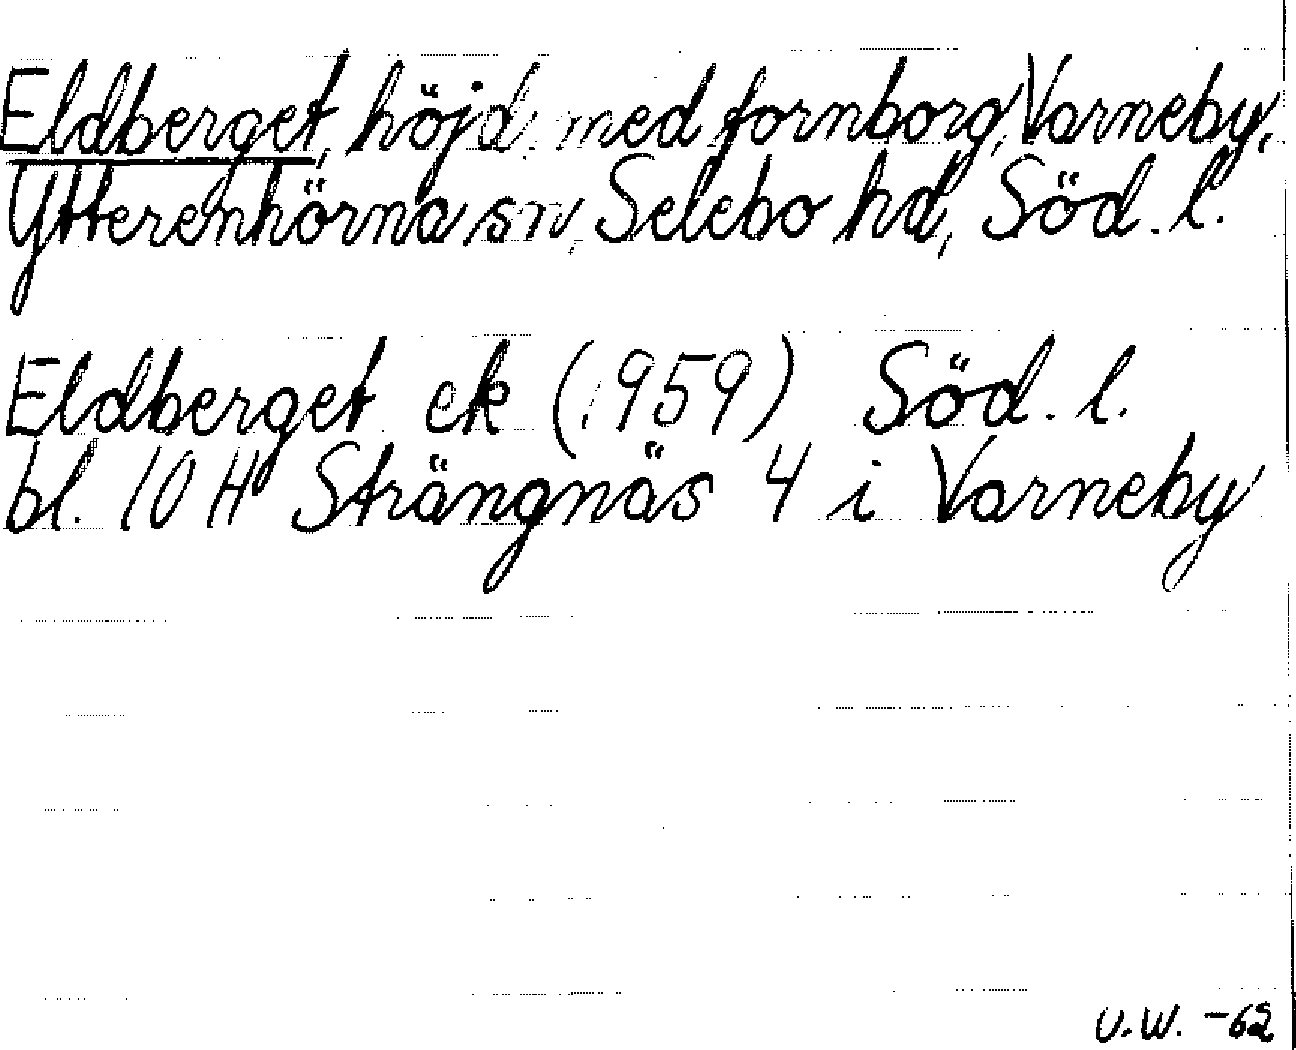 Eldberget, höjd med fornborg, Varneby,
Ytterenhörna sn, Selebo hd, Söd. l.
Eldberget ek (1959) Söd. l.
bl. 10 H Strängnäs 4 i Varneby
U.W. -62